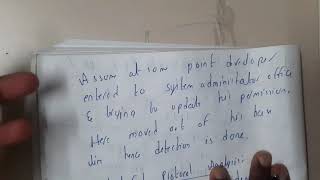 Assum at som point developer
entered to system administrator office
& trying to update his permission.
Here moved out of his ban
dim hence detection is done
Protocol Analysis: